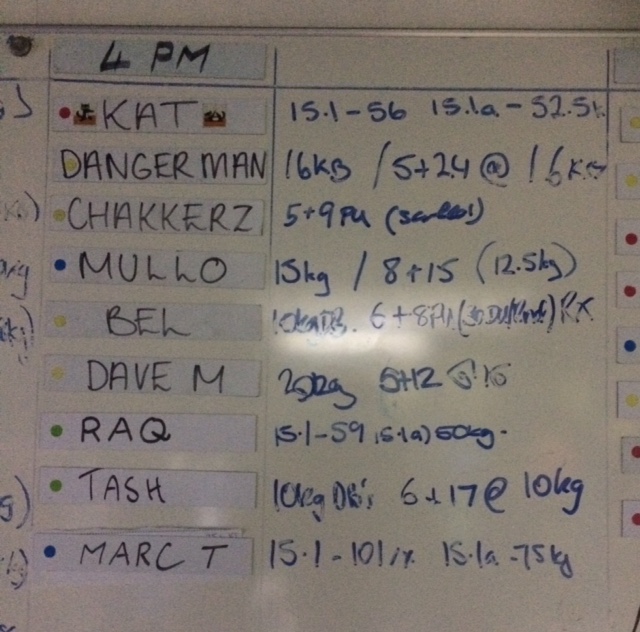 4 PM
KAT 15.1-56 15.1a-52.5k
DANGERMAN 16KB /5+24 @ 16KB
CHAKKERZ 5+9PU
MULLO 15kg / 8+15 (12.5kg)
BEL 10kg DB. 6+8PU RX
DAVE M 5+12
RAQ 15.1-59 15.1a) 50kg.
TASH 10kg DB's 6+17@ 10kg
MARC T 15.1-101 rx 15.1a-75kg